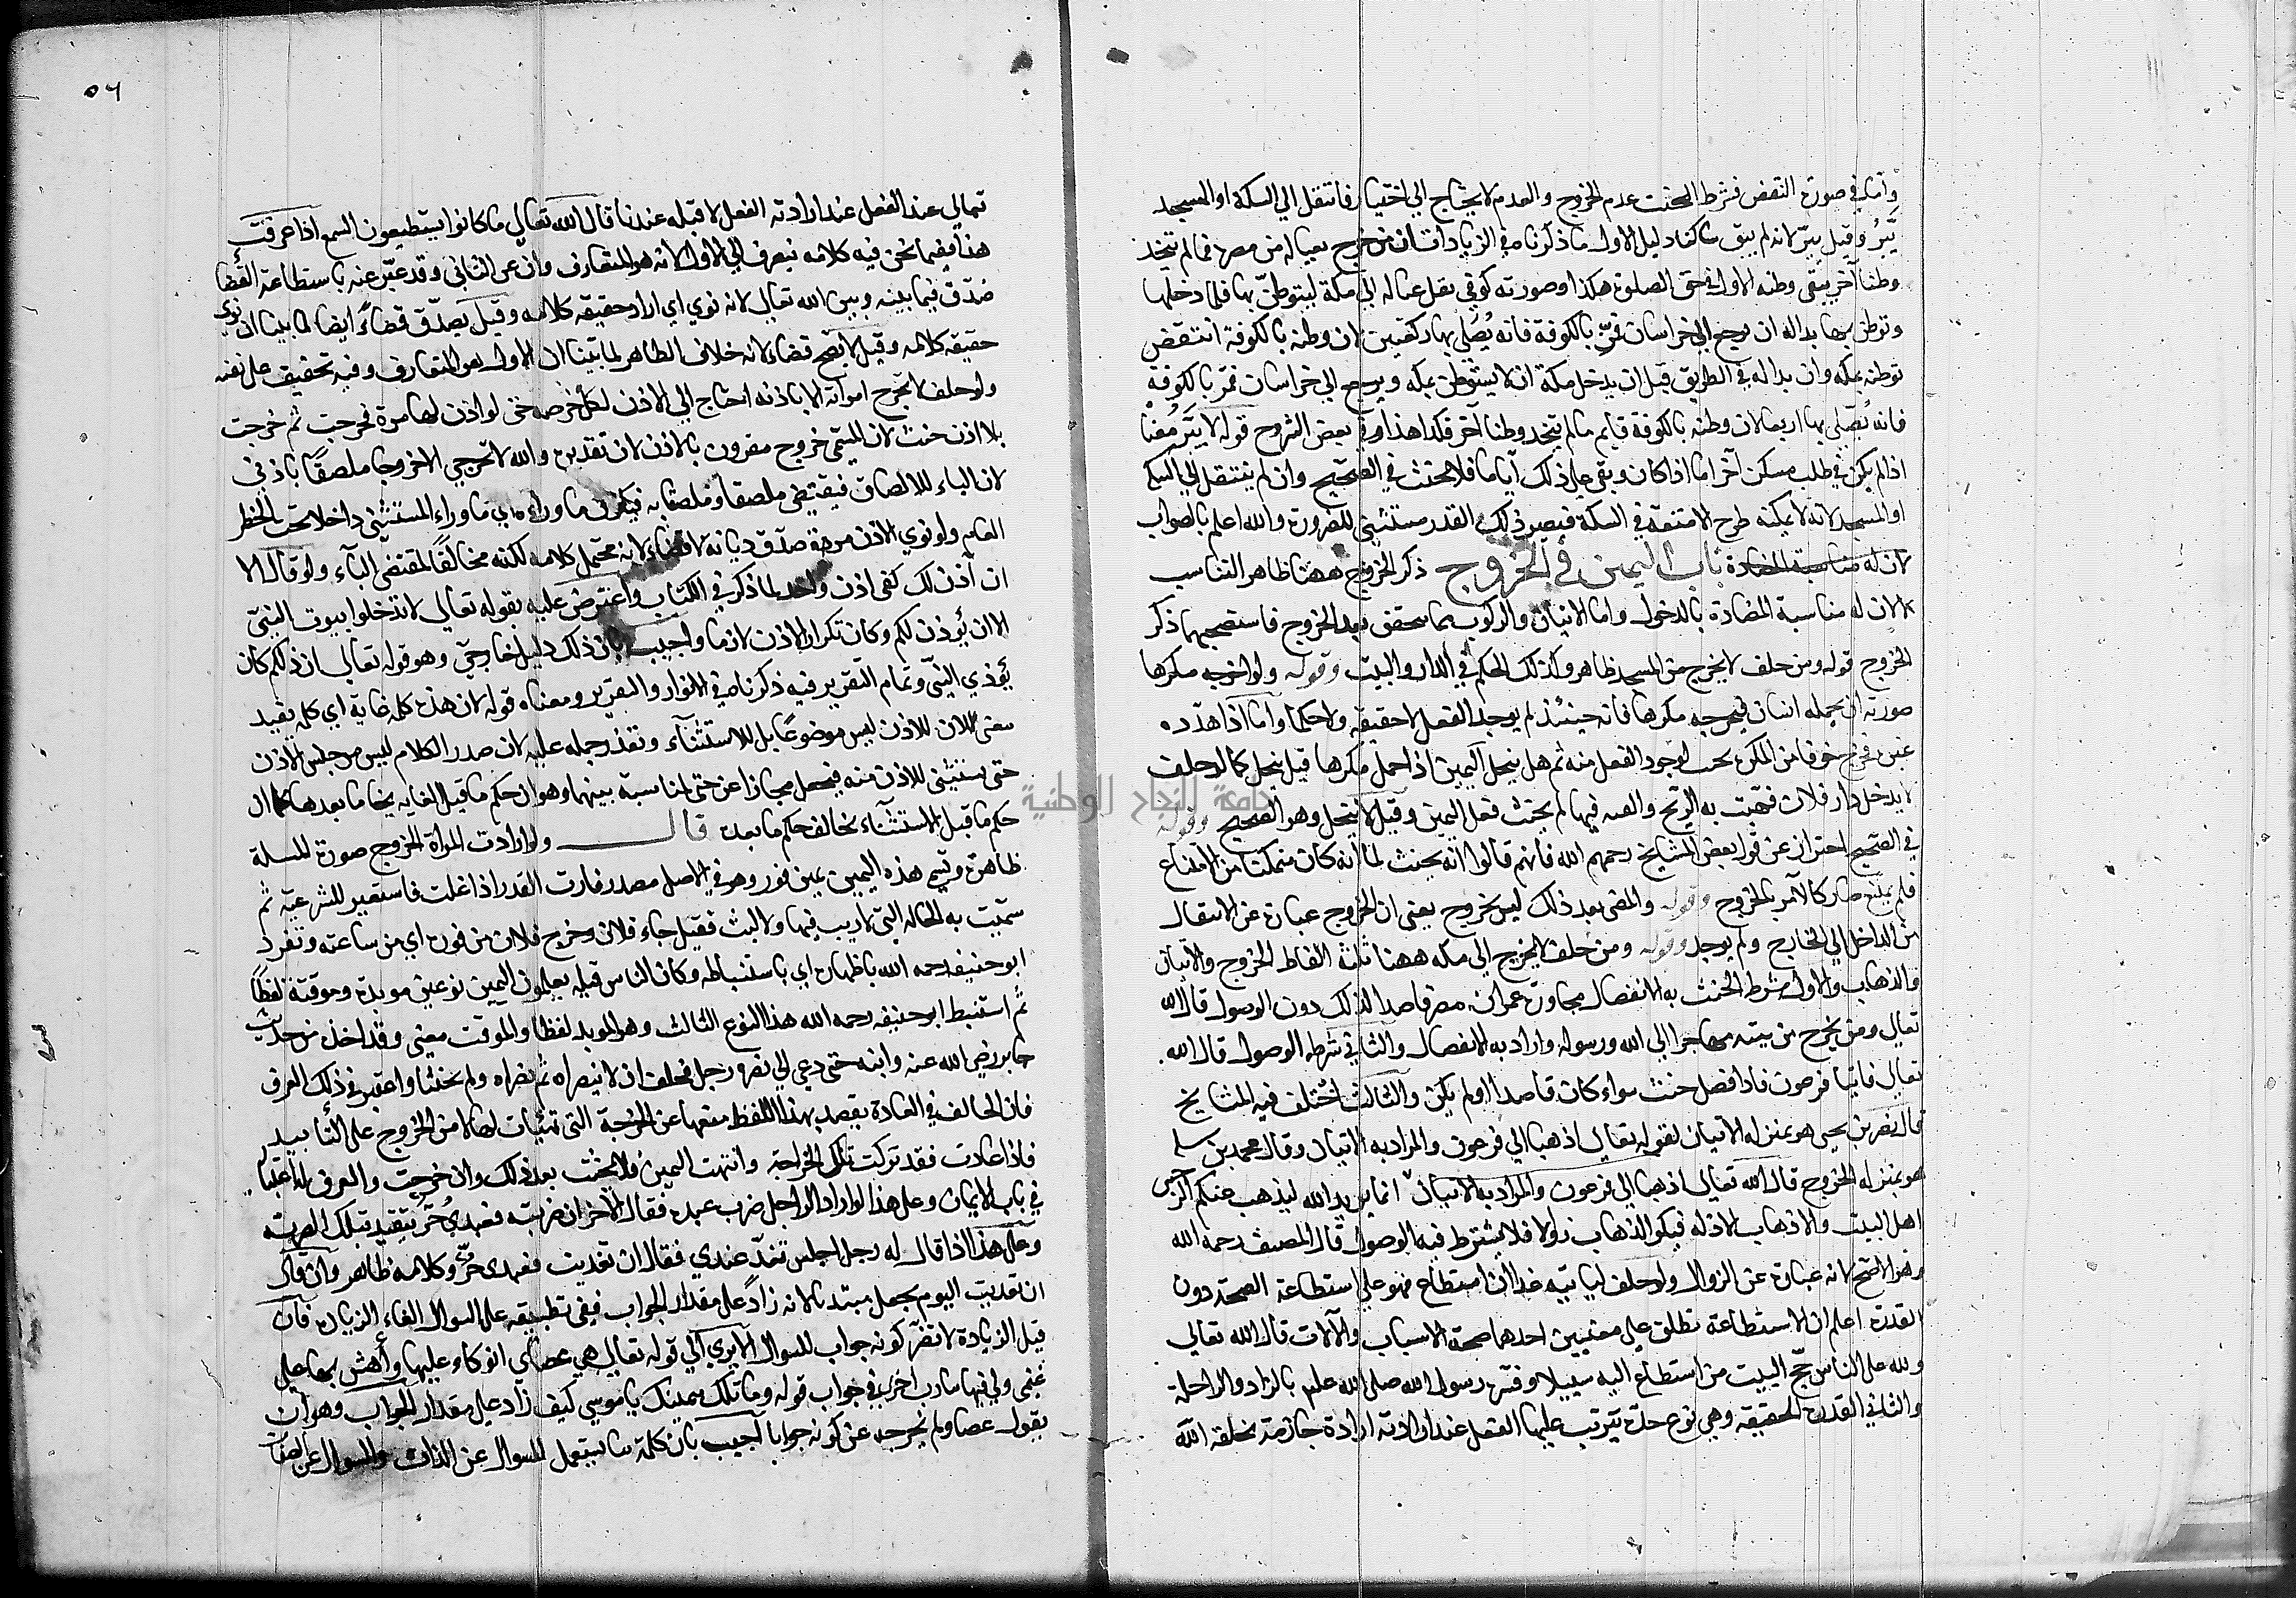 وأما في صورة النقض فشرط الحنث عدم الخروج والعدم لا يحتاج الى اختيار فانتقل الى السكة او المسجد
يبر وقيل يبر لانه لم يبق ساكنا دليل الاول ما ذكرناه في الزيادات ان من خرج بعياله من مصره فما لم يتخذ
وطنا آخر يبقى وطنه الاول في حق الصلوة هكذا وصورته كوفي نقل عياله الى مكة ليتوطن بها فلما دخلها
وتوطن بها بدا له ان يرجع الى خراسان فمر بالكوفة فانه يصلي بها ركعتين لان وطنه بالكوفة انتقض
توطنه بمكه وان بدا له في الطريق قبل ان يدخل مكة ان لا يستوطن بمكه ويرجع الى خراسان فمر بالكوفة
فانه يصلي بها اربعا لان وطنه بالكوفة قايم مالم يتخد وطنا آخر فكذا هذا وفي بعض الشروح قوله لا يبر معناه
اذا لم يكن في طلب مسكن آخر اما اذا كان وبقي على ذلك اياما فلا يحنث في الصحيح وان لم ينتقل الى السكة
او المسجد لانه لا يمكنه طرح الامتعة في السكة فيصير ذلك القدر مستثنى للضرورة والله اعلم بالصواب
لان له مناسبة المضادة باب اليمين في الخروج ذكر الخروج ههنا ظاهر التناسب
لان له مناسبة المضادة بالدخول واما الاتيان والركوب مما يتحقق بعد الخروج فاستصحبهما ذكر
الخروج قوله ومن حلف لا يخرج من المسجد ظاهر وكذلك الحكم في الدار والبيت وقوله ولو اخرجه مكرها
صورته ان يحمله انسان فيخرجه مكرها فانه حينئذ لم يوجد الفعل لا حقيقة ولا حكما واما اذا هدده
غيره فخرج خوفا من المكره يحنث لوجود الفعل منه ثم هل ينحل اليمين اذا حمل مكرها قيل ينحل كما لو حلف
لا يدخل دار فلان فهبت به الريح والقته فيها لم يحنث وقيل لا ينحل وهو الصحيح وقوله
في الصحيح احتراز عن قول بعض المشايخ رحمهم الله فانهم قالوا انه يحنث لما انه كان متمكنا من الامتناع
فلم يمتنع صار كالآمر بالخروج وقوله والمضى بعد ذلك ليس بخروج يعنى ان الخروج عبارة عن الانتقال
من الداخل الى الخارج ولم يوجد وقوله ومن حلف لا يخرج الى مكه ههنا ثلثة الفاظ الخروج والاتيان
والذهاب والاول شرط الحنث به الانفصال مجاوزة عمران مصره قاصدا لذلك دون الوصول قال الله
تعالى ومن يخرج من بيته مهاجرا الى الله ورسوله واراد به الانفصال والثاني شرطه الوصول قال الله
تعالى فاتيا فرعون فاذا فصل حنث سواء كان قاصدا اولم يكن والثالث اختلف فيه المشايخ
قال نصر بن يحيى هو بمنزلة الاتيان لقوله تعالى اذهبا الى فرعون والمراد به الاتيان وقال محمد بن سلمه
هو بمنزله الخروج قال الله تعالى اذهبا الى فرعون والمراد به الاتيان انما يريد الله ليذهب عنكم الرجس
اهل البيت والاذهاب الازالة فيكون الذهاب زوالا فلا يشترط فيه الوصول قال المصنف رحمه الله
وهو الاصح لانه عبارة عن الزوال ولو حلف ليأتينه غدا ان استطاع فهو على استطاعة الصحة دون
القدرة اعلم ان الاستطاعة تطلق على معنيين احدهما صحة الاسباب والآلات قال الله تعالى
ولله على الناس حج البيت من استطاع اليه سبيلا وفسره رسول الله صلى الله عليه بالزاد والراحلة
والثاني القدرة الحقيقية وهي نوع حدة يترتب عليها الفعل عند ارادته ارادة جازمة يخلقه الله
تعالى عند الفعل عند ارادته الفعل لا قبله عندنا قال الله تعالى ما كانوا يستطيعون السمع اذا عرفت
هذا ففيما نحن فيه كلامه ينصرف الى الاول لانه هو المتعارف وان عنى الثاني وقد عبر عنه باستطاعة القضا
صدق فيما بينه وبين الله تعالى لانه نوى اي اراد حقيقه كلامه وقيل يصدق قضاء ايضا لما بينا ان نوى
حقيقه كلامه وقيل لا يصح قضاء لانه خلاف الظاهر لما بينا ان الاول هو المتعارف وفيه تخفيف على نفسه
ولو حلف لا تخرج امراته الا باذنه احتاج الى الاذن لكل خرجه حتى لو اذن لها مرة فخرجت ثم خرجت
بلا اذن حنث لان المستثنى خروج مقرون بالاذن لان تقديره والله لا تخرجي الا خروجا ملصقا باذني
لان الباء للالصاق فيقتضى ملصقا وملصقا به فيكون ما وراءه اي ما وراء المستثنى داخلا تحت الحظر
العام ولو نوى الاذن مرة صدق ديانة لا قضاء لانه محتمل كلامه لكنه مخالف لمقتضى الباء ولو قال الا
ان آذن لك كفى اذن واحد لما ذكر في الكتاب واعترض عليه بقوله تعالى لا تدخلوا بيوت النبي
الا ان يؤذن لكم وكان تكرار الاذن لازما واجيب بان ذلك دليل خارجي وهو قوله تعالى ان ذلكم كان
يؤذي النبي وتمام التقرير فيه ذكرناه في الانوار والتقرير ومعناه قوله لان هذه كلمة غاية اي كلمة يفيد
معنى الا ان للاذن ليس موضوعا بل للاستثناء وتعذر حمله عليه لان صدر الكلام ليس من جنس الاذن
حتى يستثنى للاذن منه فيجعل مجازا عن حتى لمناسبة بينهما وهو ان حكم ما قبل الغايه يخالف ما بعدها كما ان
حكم ما قبل الاستثناء يخالف حكم ما بعده قال ولو ارادت المراة الخروج صورة المسلة
ظاهرة وتسمى هذه اليمين يمين فور وهو في الاصل مصدر فارت القدر اذا غلت فاستعير للسرعة ثم
سميت به الحالة التي لا ريب فيها ولا لبث فقيل جاء فلان وخرج فلان من فوره اي من ساعته وتفرد
ابو حنيفه رحمه الله باظهاره اي باستنباطه وكان الناس قبله يعلمون اليمين نوعين مؤبدة وموقتة لفظا
ثم استنبط ابو حنيفه رحمه الله هذا النوع الثالث وهو المؤبد لفظا والموقت معنى وقد اخذه من حديث
جابر رضي الله عنه وابنه حتى دعي الى نصره رجل فحلفا ان لا ينصراه ثم نصراه ولم يحنثا واعتبر في ذلك العرف
فان الحالف في العادة يقصد بهذا اللفظ منعها عن الخرجة التي تهيأت لها لا من الخروج على التأبيد
فاذا عادت فقد تركت تلك الخرجة وانتهت اليمين فلا يحنث بعد ذلك وان خرجت والعرف له اعتبار
في باب الايمان وعلى هذا لو اراد الرجل ضرب عبده فقال الآخر ان ضربته فعبدي حر يتقيد بتلك الضربة
وعلى هذا اذا قال له رجل اجلس تغد عندي فقال ان تغديت فعبدى حر وكلامه ظاهر وان قال
ان تغديت اليوم يجعل مبتديا لانه زاد على مقدار الجواب ففى تطبيقه على السوال الغاء الزيادة فان
قيل الزيادة لا تضر كونه جواب للسوال الا يرى الى قوله تعالى هي عصاي اتوكاء عليها وأهش بها على
غنمي ولي فيها مآرب اخرى في جواب قوله وما تلك بيمينك يا موسى كيف زاد على مقدار الجواب وهو ان
يقول عصا ولم يخرجه عن كونه جوابا اجيب بان كلمة ما تستعمل للسوال عن الذات والسوال عن الصفات
٥٦
جامعة النجاح الوطنية